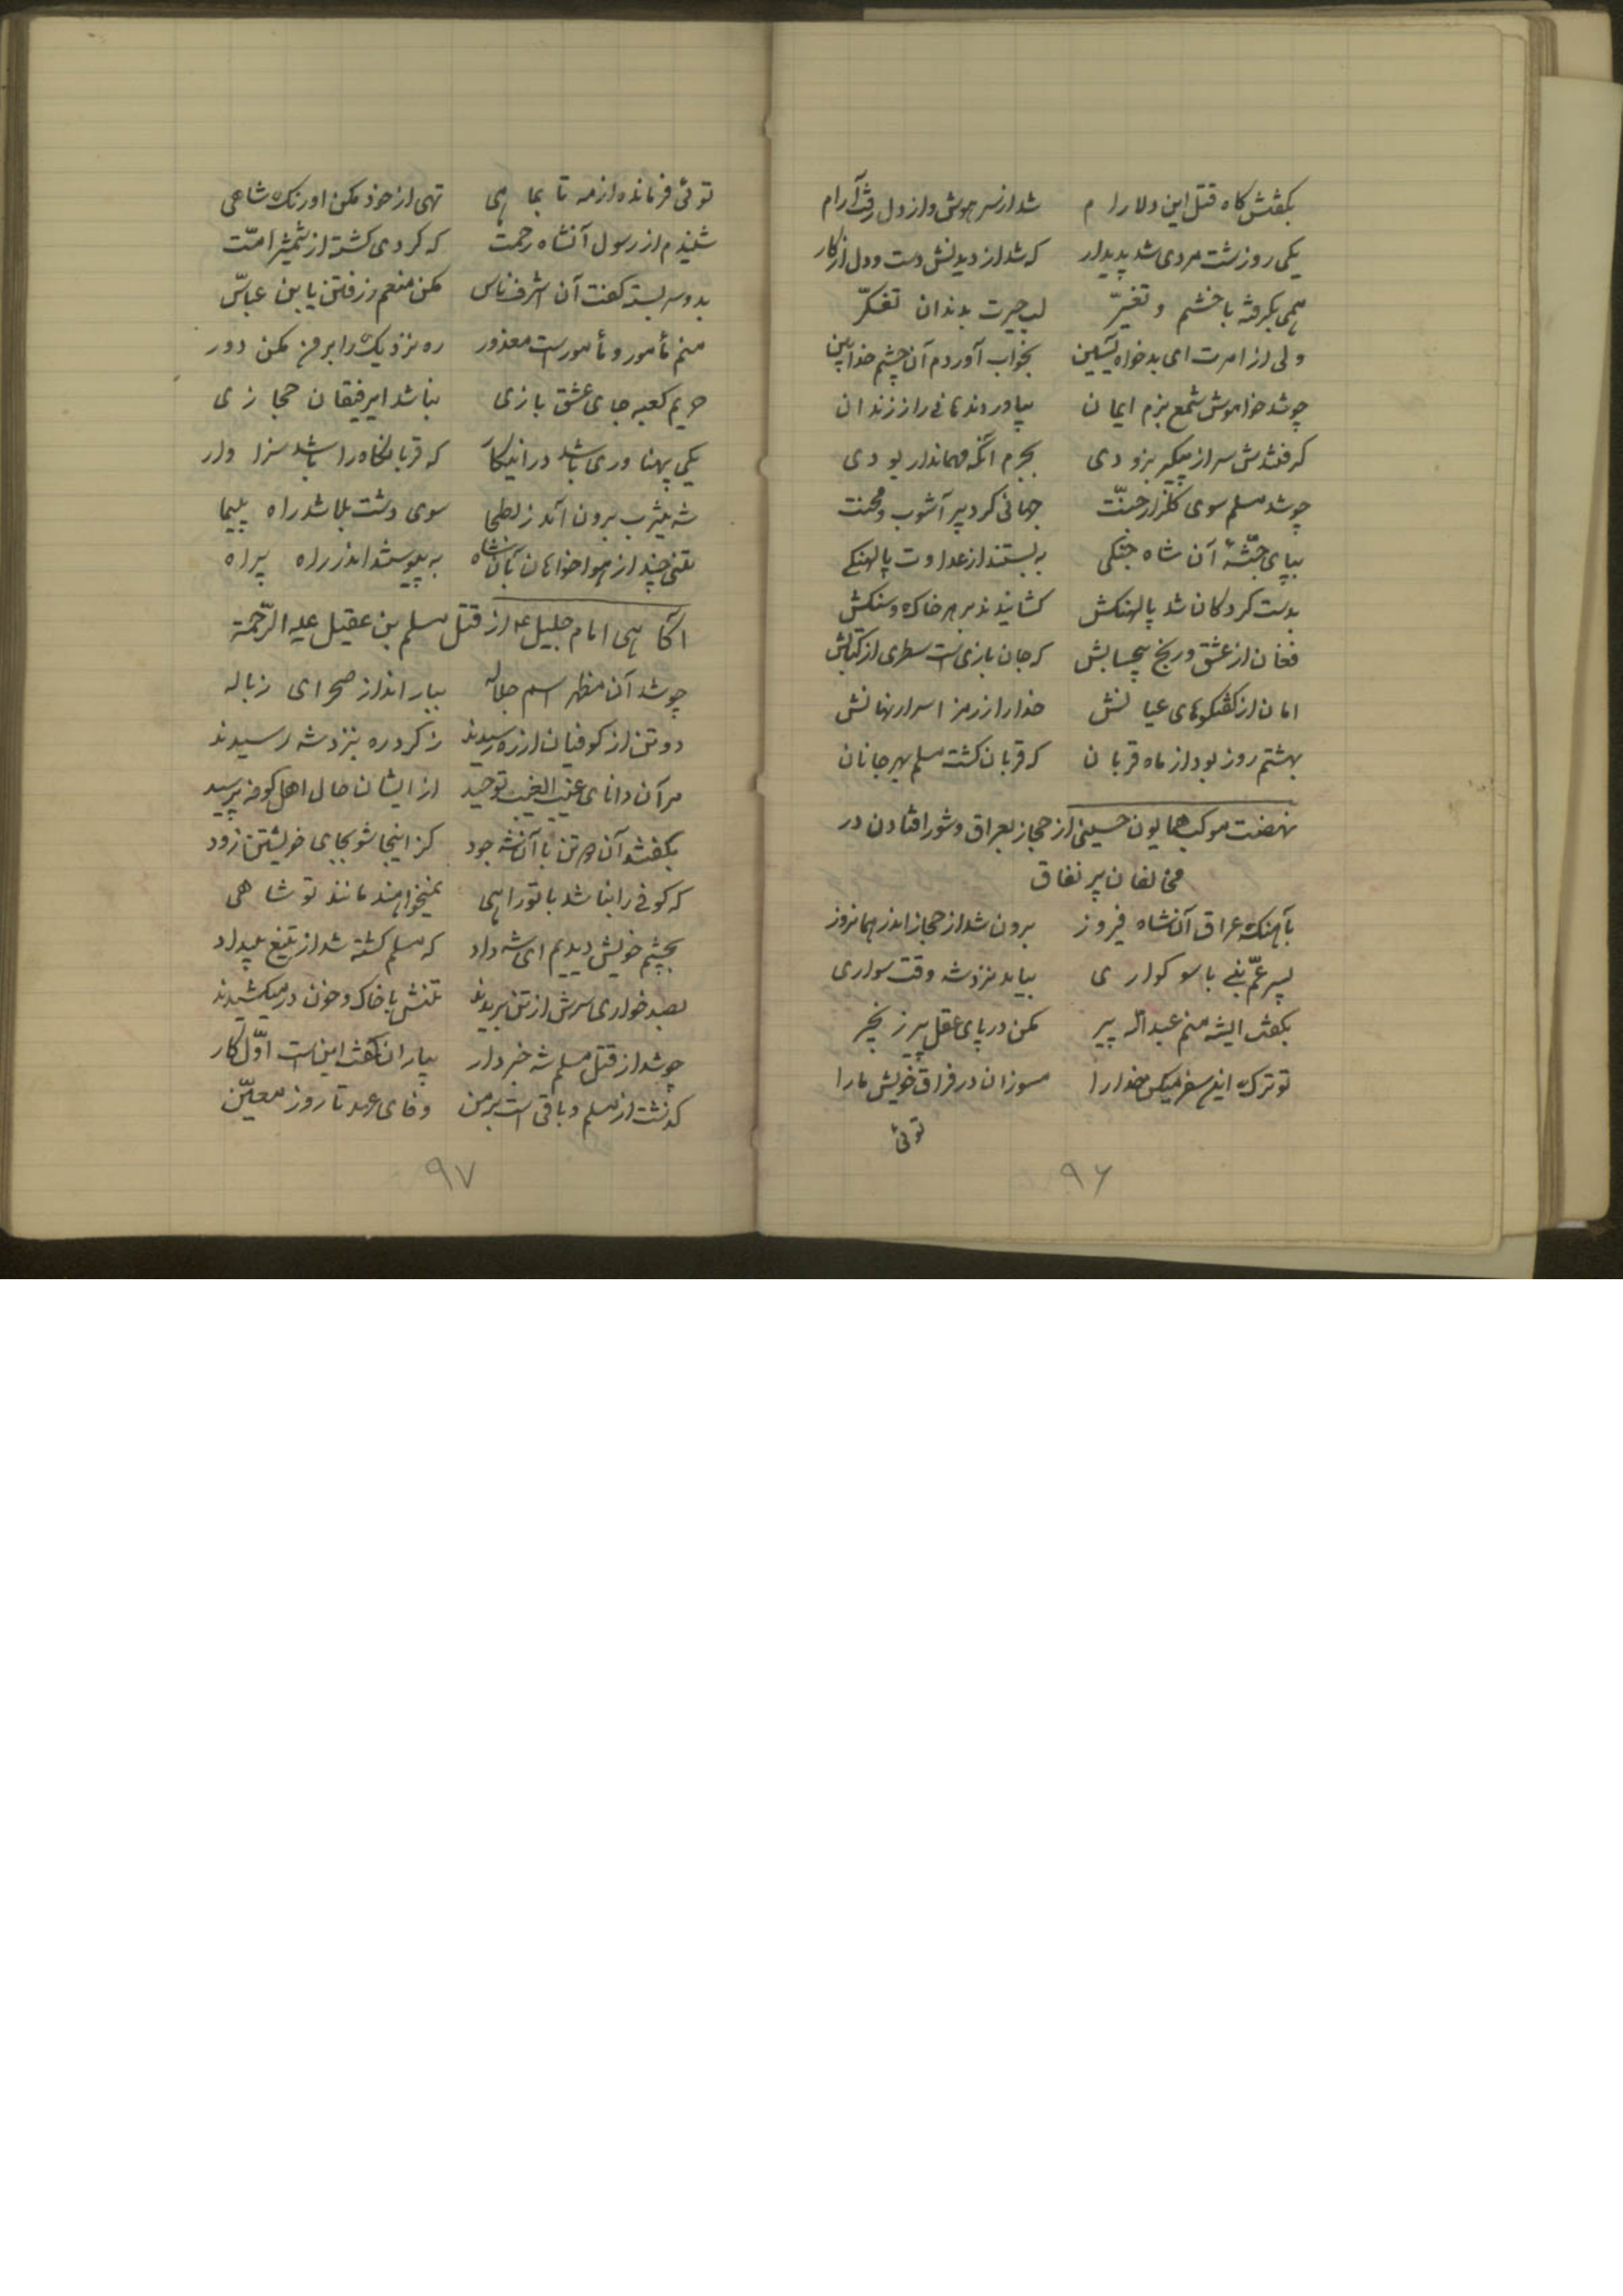 بگفتش گاه قتل این دلارام شد از سر هوش و از دل رفت آرام
یکی روزشت مردی شد پدیدار که شد از دیدنش دست و دل از کار
همی بگرفته با خشم و تغیّر لب حیرت بدندان تفکّر
ولی از امرت ای بدخواه بخواب آوردم آن چشم خدابین
چو شد خواموش شمع بزم ایمان بیاوردند هانی را ز زندان
گرفتندش سر از پیکر بزودی بجرم آنکه مهماندار بودی
چو شد مسلم سوی گلزار جنّت جهانی گرد پر آشوب و محنت
بپای جثّهٔ آن شاه جنگی به بستند از عداوت پالهنکی
بدست کردکان شد پالهنکش کشانیدند بر هر خاک و سنکش
فغان از عشق و رنج بیحسابش که جان بازی است سطری از کتابش
امان از گفتگوهای عیانش خدا را از رمز اسرار نهانش
بهشتم روز بود از ماه قربان که قربان کشت مسلم بهر جانان
نهضت موکب همایون حسینی از حجاز بعراق و شور افتادن در
مخالفان پر نفاق
بآهنک عراق آنشاه فیروز برون شد از حجاز اندر همانروز
پسر عمّ نبی با سوکواری بیامد نزد شه وقت سواری
بگفت ایشه منم عبداله پیر مکن در پای عقل پیر زنجیر
تو ترک این سفر میکن خدا را مسوزان در فراق خویش ما را
توئی
۹۶
توئی فرمانده از مه تا بماهی تهی از خود مکن اورنک شاهی
شنیدم از رسول آنشاه رحمت که گردی کشته از شمشیر امّت
بدو سر بسته گفت آن اشرف ناس مکن منعم ز رفتن یابن عباسّ
منم مأمور و مأمور است معذور ره نزدیک را بر من مکن دور
حریم کعبه جای عشق بازی نباشد ایرفیقان حجازی
یکی پهناوری باشد در اینکار که قربانگاه را باشد سزاوار
شه یثرب برون آمد ز بطحا سوی دشت بلا شد راه پیما
تنی چند از هواخواهان آنشاه به پیوستند اندر راه براه
آگاهی امام جلیل ع از قتل مسلم بن عقیل علیه الرّحمة
چو شد آن مظهر اسم جلاله ببار انداز صحرای زباله
دو تن از کوفیان از ره رسیدند ز کرد ره بنزد شه رسیدند
مر آن دانای غیب الغیب توحید از ایشان حال اهل کوفه پرسید
بگفتند آن دو تن با آنشه جود کز اینجا شو بجای خویشتن زود
که کوفی را نباشد با تو راهی نمیخواهند مانند تو شاهی
بچشم خویش دیدیم ای شه داد که مسلم کشته شد از تیغ بیداد
بصد خواری سرش از تن بریدند تنش با خاک و خون در میکشیدند
چو شد از قتل مسلم شه خبردار بیاران گفت این است اوّل کار
گذشت از مسلم و باقی است بر من وفای عهد تا روز معیّن
۹۷